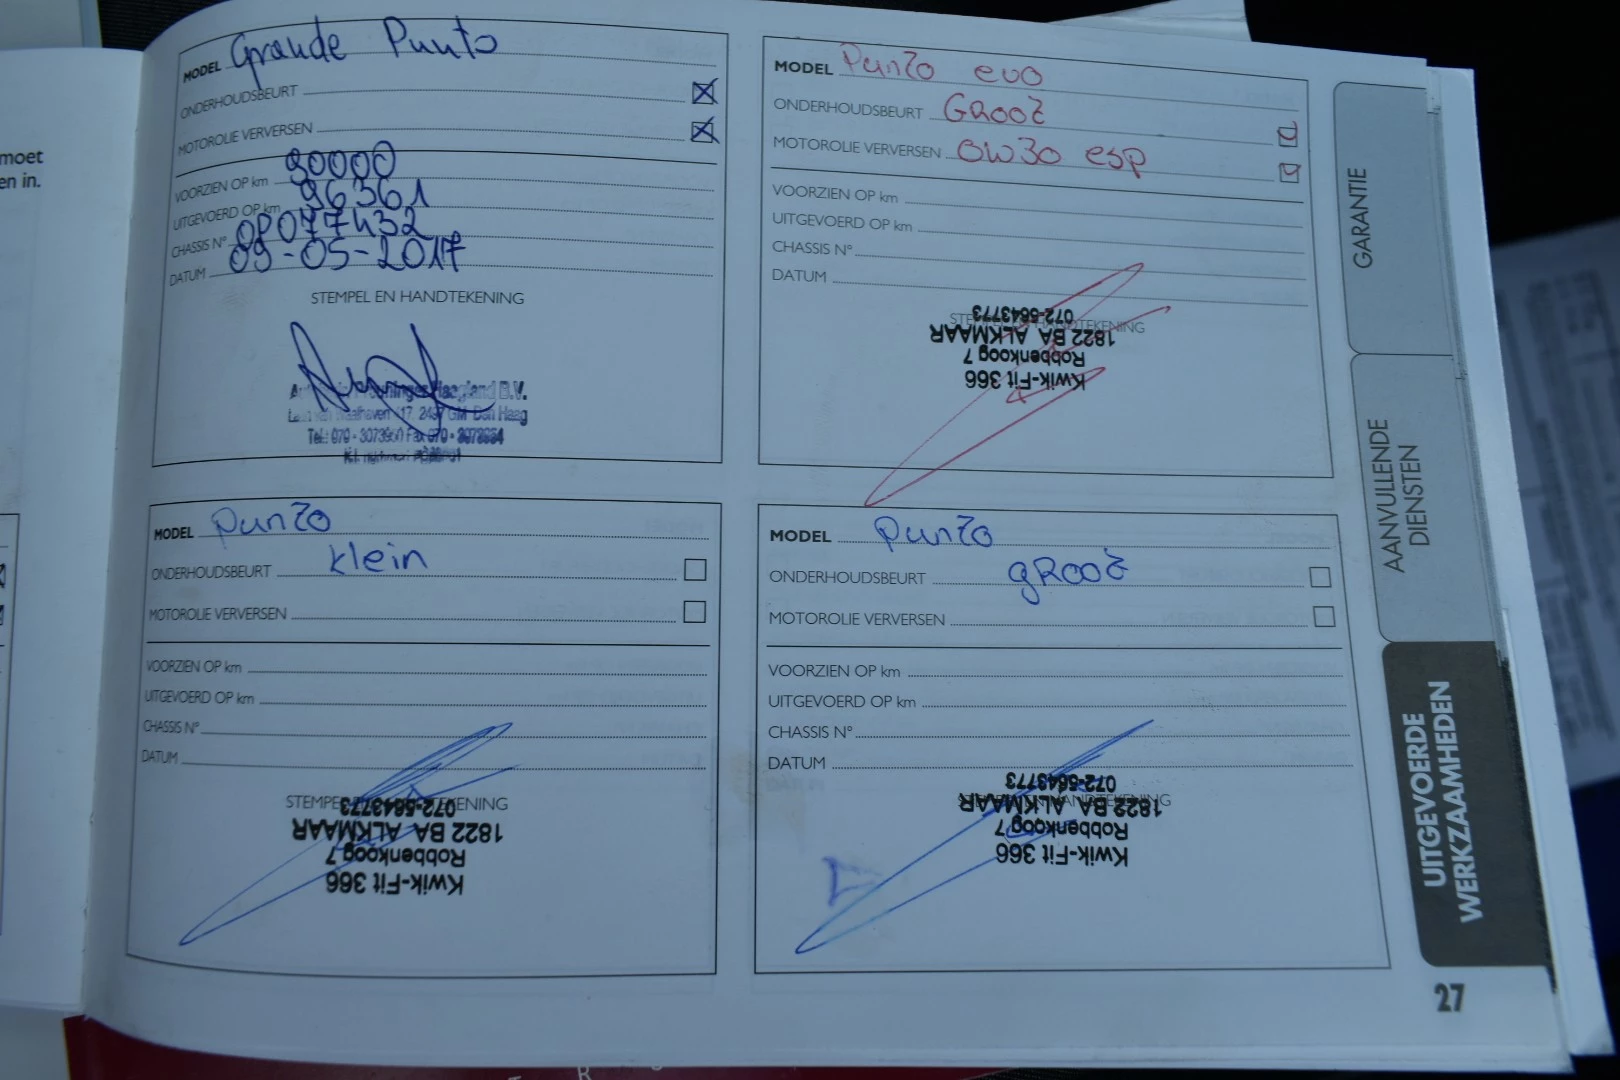 moet
en in.
MODEL Grande Punto
ONDERHOUDSBEURT
MOTOROLIE VERVERSEN
VOORZIEN OP km 90000
UITGEVOERD OP km 96361
CHASSIS N° 0P077432
DATUM 09-05-2017
STEMPEL EN HANDTEKENING
Haagland B.V.
17, 2497 GM Den Haag
Tel.: 070 - 3073960 Fax 070 -
MODEL Punto evo
ONDERHOUDSBEURT GROOt
MOTOROLIE VERVERSEN 0W30 esp
VOORZIEN OP km
UITGEVOERD OP km
CHASSIS N°
DATUM
STEMPEL EN HANDTEKENING
Kwik-Fit 366
Robbenkoog 7
1822 BA ALKMAAR
072-5643773
MODEL Punto
ONDERHOUDSBEURT klein
MOTOROLIE VERVERSEN
VOORZIEN OP km
UITGEVOERD OP km
CHASSIS N°
DATUM
STEMPEL EN HANDTEKENING
Kwik-Fit 366
Robbenkoog 7
1822 BA ALKMAAR
072-5643773
MODEL Punto
ONDERHOUDSBEURT gROOt
MOTOROLIE VERVERSEN
VOORZIEN OP km
UITGEVOERD OP km
CHASSIS N°
DATUM
STEMPEL EN HANDTEKENING
Kwik-Fit 366
Robbenkoog 7
1822 BA ALKMAAR
072-5643773
GARANTIE
AANVULLENDE
DIENSTEN
UITGEVOERDE
WERKZAAMHEDEN
27